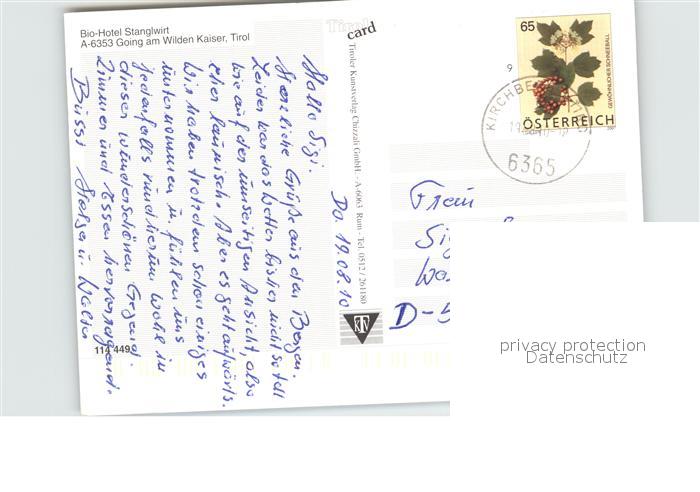 Bio-Hotel Stanglwirt
A-6353 Going am Wilden Kaiser, Tirol
Tirol
card
Tiroler Kunstverlag Chizzali GmbH. - A-6063 Rum - Tel. 0512 / 261180
KTV
114 449
Do. 19.08.10
Hallo Sigi.
Herzliche Grüße aus den Bergen.
Leider war das Wetter bisher nicht so toll
wie auf der umseitigen Ansicht, also
eher launisch. Aber es geht aufwärts.
Wir haben trotzdem schon einiges
unternommen u. fühlen uns
jedenfalls rundherum wohl in
dieser wunderschönen Gegend.
Zimmer und Essen hervorragend.
Bussi
65
GEWÖHNLICHER SCHNEEBALL
ÖSTERREICH
2007
9
6365
Frau
D-5
privacy protection
Datenschutz